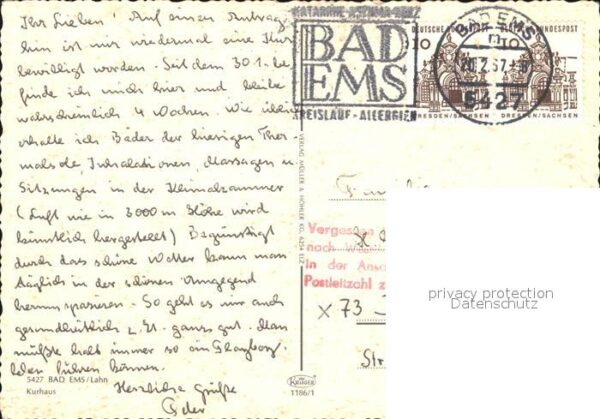 Ihr Lieben! Auf einen Antrag
hin ist mir wiedermal eine Kur
bewilligt worden. Seit dem 30.1. be-
finde ich mich hier und bleibe
wahrscheinlich 4 Wochen. Wie üblich
erhalte ich Bäder der hiesigen Ther-
malsole, Inhalationen, Massagen u.
Sitzungen in der Klimakammer
(Luft wie in 3000 m Höhe wird
künstlich hergestellt) Begünstigt
durch das schöne Wetter kann man
täglich in der schönen Umgegend
herumspazieren. So geht es mir auch
gesundheitlich z. Zt. ganz gut. Man
müßte halt immer so ein
leben führen können.
Herzliche Grüße
5427 BAD EMS/Lahn
Kurhaus
KATARRHE-ASTHMA-HERZ
BAD
EMS
KREISLAUF-ALLERGIEN
BAD EMS
m
20.2.67
5427
DEUTSCHE BUNDESPOST
10
DRESDEN/SACHSEN
DEUTSCHE BUNDESPOST
10
DRESDEN/SACHSEN
VERLAG MÜLLER & KÖHLER KG, 6254 ELZ
Vergessen
nach
in der Ansc
Postleitzahl z
x 73
Str
KRÜGER
1186/1
privacy protection
Datenschutz